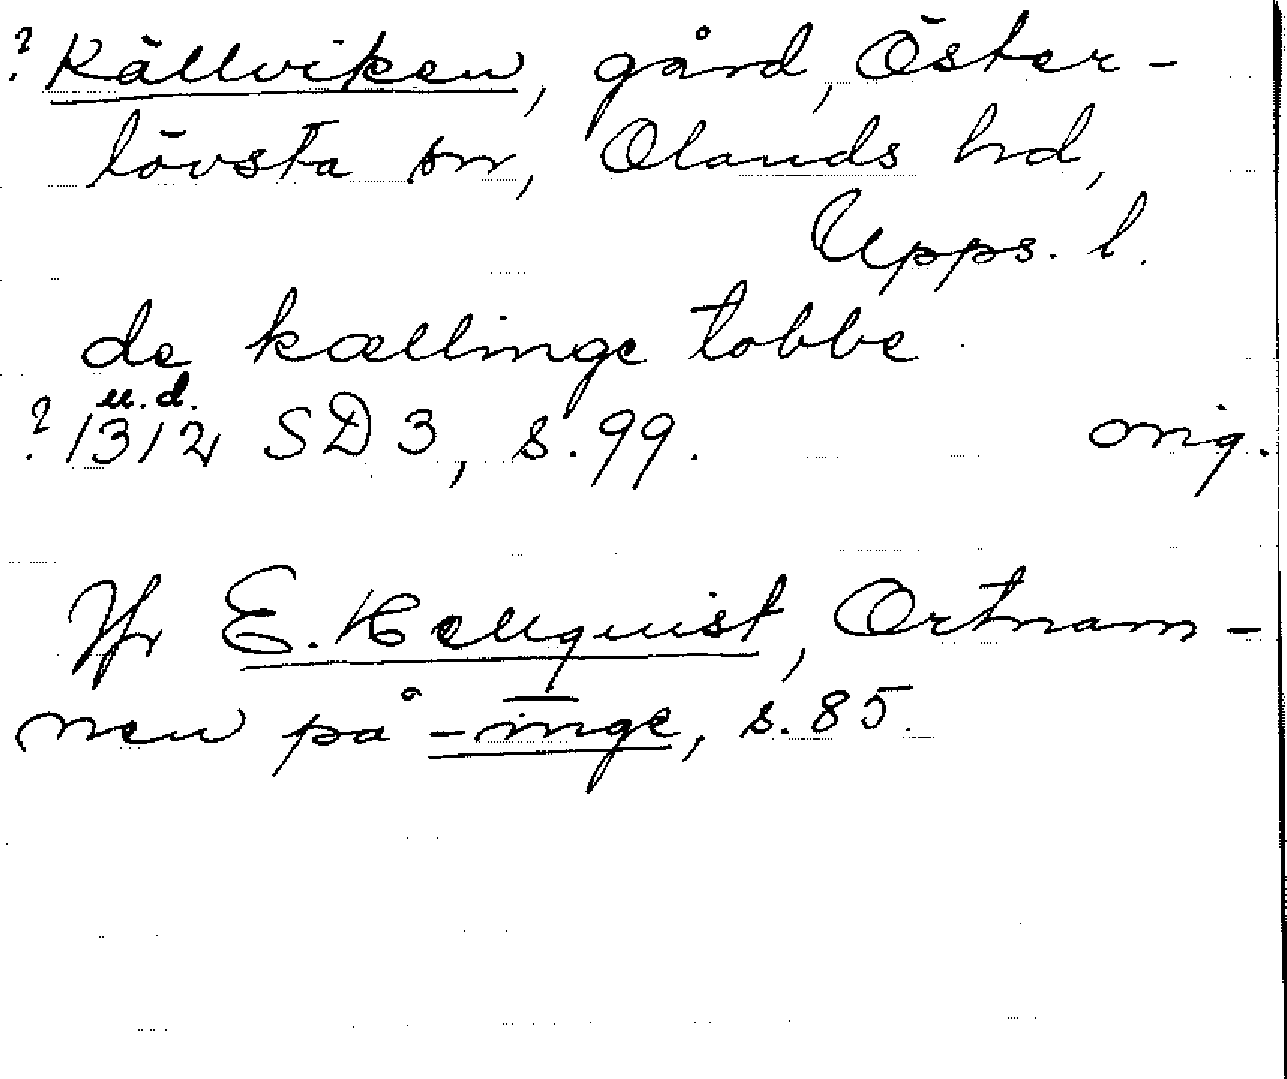 ? Källviken, gård, Öster-
lövsta sn, Olands hd,
Upps. l.
de kællinge tobbe
u.d.
? 1312 SD 3, s. 99. orig.
Jfr E. Hellquist, Ortnam-
nen på -inge, s. 85.